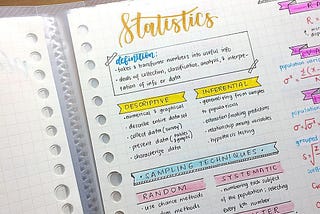 Statistics
definition:
- takes & transforms numbers into useful info
- deals of collection, classification, analysis, & interpre-
tation of info or data
DESCRIPTIVE
- numerical & graphical
- describe entire dataset
- collect data (survey)
- present data (tables & graphs)
- characterize data
INFERENTIAL
- generalizing from samples
to populations
- estimation / making predictions
- relationship among variables
- hypothesis testing
• SAMPLING TECHNIQUES •
RANDOM
- use chance methods
methods
SYSTEMATIC
- numbering each subject
of the population; selecting
every kth number
R =
population
σ² =
population
σ =
grouped
s² =